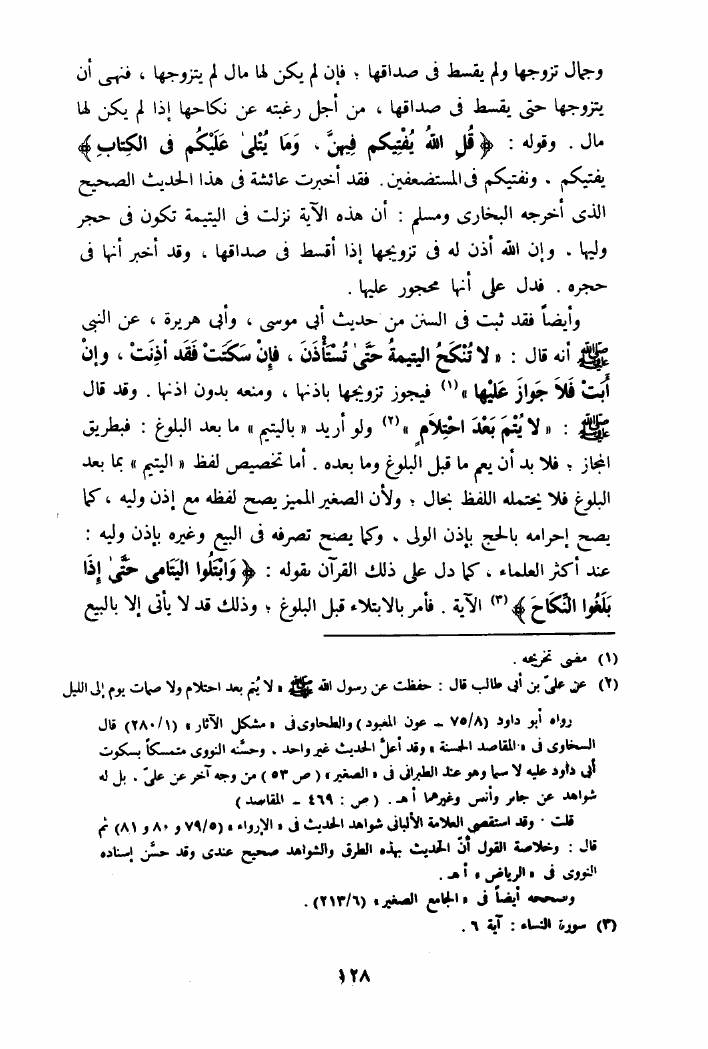 وجمال تزوجها ولم يقسط فى صداقها ؛ فإن لم يكن لها مال لم يتزوجها ، فنهى أن
يتزوجها حتى يقسط فى صداقها ، من أجل رغبته عن نكاحها إذا لم يكن لها
مال . وقوله : ﴿ قُلِ اللهُ يُفْتِيكم فِيهِنَّ ، وَمَا يُتْلىٰ عَلَيْكُم فى الكِتابِ ﴾
يفتيكم ، ونفتيكم فى المستضعفين . فقد أخبرت عائشة فى هذا الحديث الصحيح
الذى أخرجه البخارى ومسلم : أن هذه الآية نزلت فى اليتيمة تكون فى حجر
وليها . وإن الله أذن له فى تزويجها إذا أقسط فى صداقها ، وقد أخبر أنها فى
حجره . فدل على أنها محجور عليها .
وأيضاً فقد ثبت فى السنن من حديث أبى موسى ، وأبى هريرة ، عن النبى
ﷺ أنه قال : « لا تُنْكَحُ اليتيمةُ حَتَّىٰ تُسْتَأْذَنَ ، فإنْ سَكَتَتْ فَقَد أذِنَتْ ، وإنْ
أبَتْ فَلاَ جَوازَ عَلَيْها » (١) فيجوز تزويجها باذنها ، ومنعه بدون اذنها . وقد قال
ﷺ : « لا يُتْمَ بَعْدَ احْتِلَامٍ » (٢) ولو أريد « باليتيم » ما بعد البلوغ : فبطريق
المجاز ؛ فلا بد أن يعم ما قبل البلوغ وما بعده . أما تخصيص لفظ « اليتيم » بما بعد
البلوغ فلا يحتمله اللفظ بحال ؛ ولأن الصغير المميز يصح لفظه مع إذن وليه ، كما
يصح إحرامه بالحج بإذن الولى ، وكما يصح تصرفه فى البيع وغيره بإذن وليه :
عند أكثر العلماء ، كما دل على ذلك القرآن بقوله : ﴿ وَابْتَلُوا اليَتَامى حَتَّىٰ إذَا
بَلَغُوا النِّكَاحَ ﴾ (٣) الآية . فأمر بالابتلاء قبل البلوغ ؛ وذلك قد لا يأتى إلا بالبيع
(١) مضى تخريجه .
(٢) عن علىّ بن أبى طالب قال : حفظت عن رسول الله ﷺ « لا يُتم بعد احتلام ولا صمات يوم إلى الليل
رواه أبو داود (٧٥/٨ – عون المعبود) والطحاوى فى « مشكل الآثار » (٢٨٠/١) قال
السخاوى فى « المقاصد الحسنة » وقد أعلّ الحديث غير واحد . وحسَّنه النووى متمسكاً بسكوت
أبى داود عليه لا سيما وهو عند الطبرانى فى « الصغير » ( ص ٥٣ ) من وجه آخر عن علىّ . بل له
شواهد عن جابر وأنس وغيرهما أهـ . ( ص : ٤٦٩ – المقاصد )
قلت · وقد استقصى العلامة الألبانى شواهد الحديث فى « الإرواء » (٧٩/٥ و ٨٠ و ٨١) ثم
قال : وخلاصة القول أنّ الحديث بهذه الطرق والشواهد صحيح عندى وقد حسَّن إسناده
النووى فى « الرياض » أهـ .
وصححه أيضاً فى « الجامع الصغير » (٢١٣/٦) .
(٣) سورة النساء : آية ٦ .
١٢٨